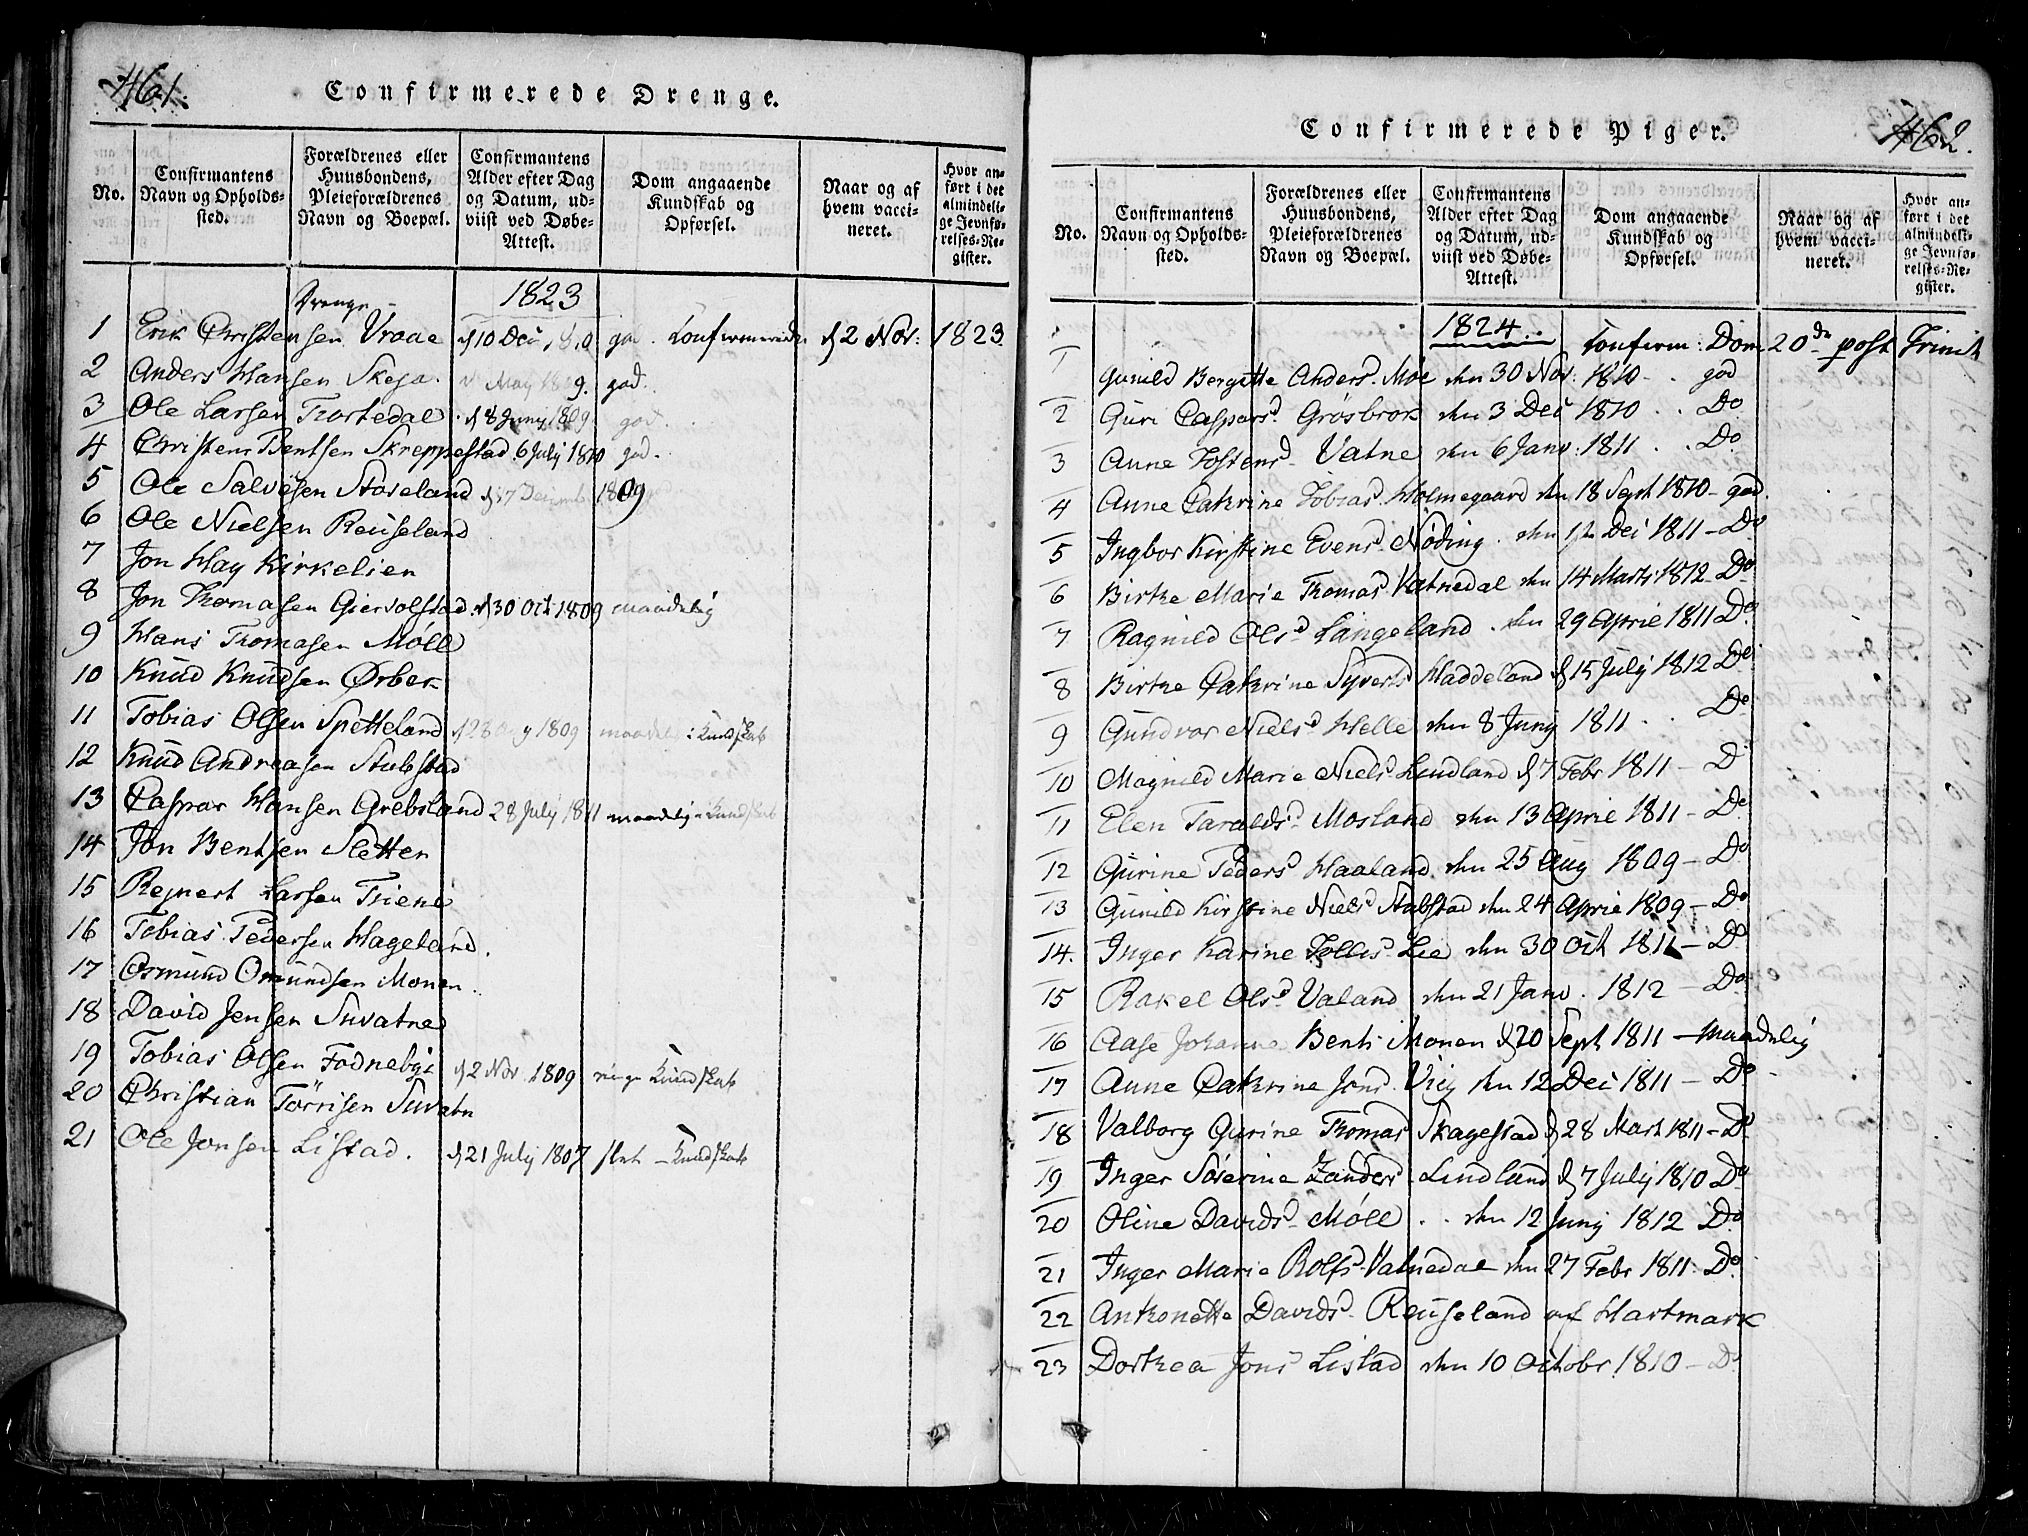 461.
Confirmerede Drenge.
No.
Confirmantens Navn og Opholds-sted.
Forældrenes eller Huusbondens, Pleieforældrenes Navn og Boepæl.
Confirmantens Alder efter Dag og Datum, ud-viist ved Døbe-Attest.
Dom angaaende Kundskab og Opførsel.
Naar og af hvem vacci-neret.
Hvor an-ført i det almindeli-ge Jevnfø-relses-Re-gister.
Drenge 1823
1 Erik Christensen Vraae d 10 Dec 1810 god. Konfirmerede d 2 Nov: 1823
2 Anders Hansen May 1809. god.
3 Ole Larsen d 8 Juny 1809 god.
4 Christen Bentsen Skreppestad 6 July 1810 god.
5 Ole Salvesen Støseland d 17 Decemb 1809
6 Ole Nielsen Reuseland
7 Jon Hay Kirkelien
8 Jon Thomasen Giervolstad. d 30 Oct 1809 maadelig
9 Hans Thomasen Møll
10 Knud Knudsen Ørbek
11 Tobias Olsen Spetteland d 28 1809 maadel i Kundskab
12 Knud Andreasen Stubstad
13 Caspar Hansen Grebsland 28 July 1811 maadelig i Kundskab
14 Jon Bentsen Sletten
15 Rejnert Larsen
16 Tobias Pedersen Hageland.
17 Osmund Omundsen Monen.
18 David Jensen Suvatne
19 Tobias Olsen Fodnebye d 2 Nov. 1809 ringe Kundskab
20 Christian Tørrisen Suvatn
21 Ole Jonsen Listad. d 21 July 1807 slet Kundskab
462.
Confirmerede Piger.
No.
Confirmantens Navn og Opholds-sted.
Forældrenes eller Huusbondens, Pleieforældrenes Navn og Boepæl.
Confirmantens Alder efter Dag og Datum, ud-viist ved Døbe-Attest.
Dom angaaende Kundskab og Opførsel.
Naar og af hvem vacci-neret.
Hvor an-ført i det almindeli-ge Jevnfø-relses-Re-gister.
1824. Konferm: Dom 20de post Trinit
1 Gunild Bergitte Anders. Moe den 30 Nov: 1810 . god
2 Guri Caspars Grøsbrok den 3 Dec 1810 . . Do
3 Anne Tostens Vatne den 6 Janv: 1811 . . Do
4 Anne Cathrine Tobias. Holmegaard den 18 Sept 1810 - god.
5 Ingbor Kirstine Evens Nøding. den 12 Dec 1811 - Do
6 Birthe Marie Thomas Vatnedal den 14 Marts 1812 Do
7 Ragnild Ols Langeland . den 29 April 1811 Do
8 Birthe Cathrine Syverts Haddeland d 15 July 1812 Do
9 Gundvor Niels Helle den 8 Juny 1811 . . Do
10 Magnild Marie Niels Lindland d 7 Febr 1811 - Do
11 Elen Taralds Mosland den 13 April 1811 - Do
12 Gurine Peders Haaland. den 25 Aug 1809 - Do
13 Gunild Kirstine Niels Stubstad den 24 April 1809 - Do
14. Inger Karine Lie den 30 Oct 1811 - Do
15 Rakel Ols Valand den 21 Janv. 1812 - Do
16 Aase Johanne Bents Monen d 20 Sept 1811 - Maadelig
17 Anne Cathrine Jons. Vig den 12 Dec 1811 - Do
18 Valborg Gurine Thomas Skagestad d 28 Mart 1811 - Do
19 Inger Søverine Zanders Lindland d 7 July 1810 Do
20 Oline Davids Møll . . den 12 Juny 1812 Do
21 Inger Marie Rolfs Vatnedal den 27 Febr 1811: Do
22 Anthonette Davids Reuseland af Hartmark
23 Dorthea Jons Listad den 10 Octobr 1810 - Do